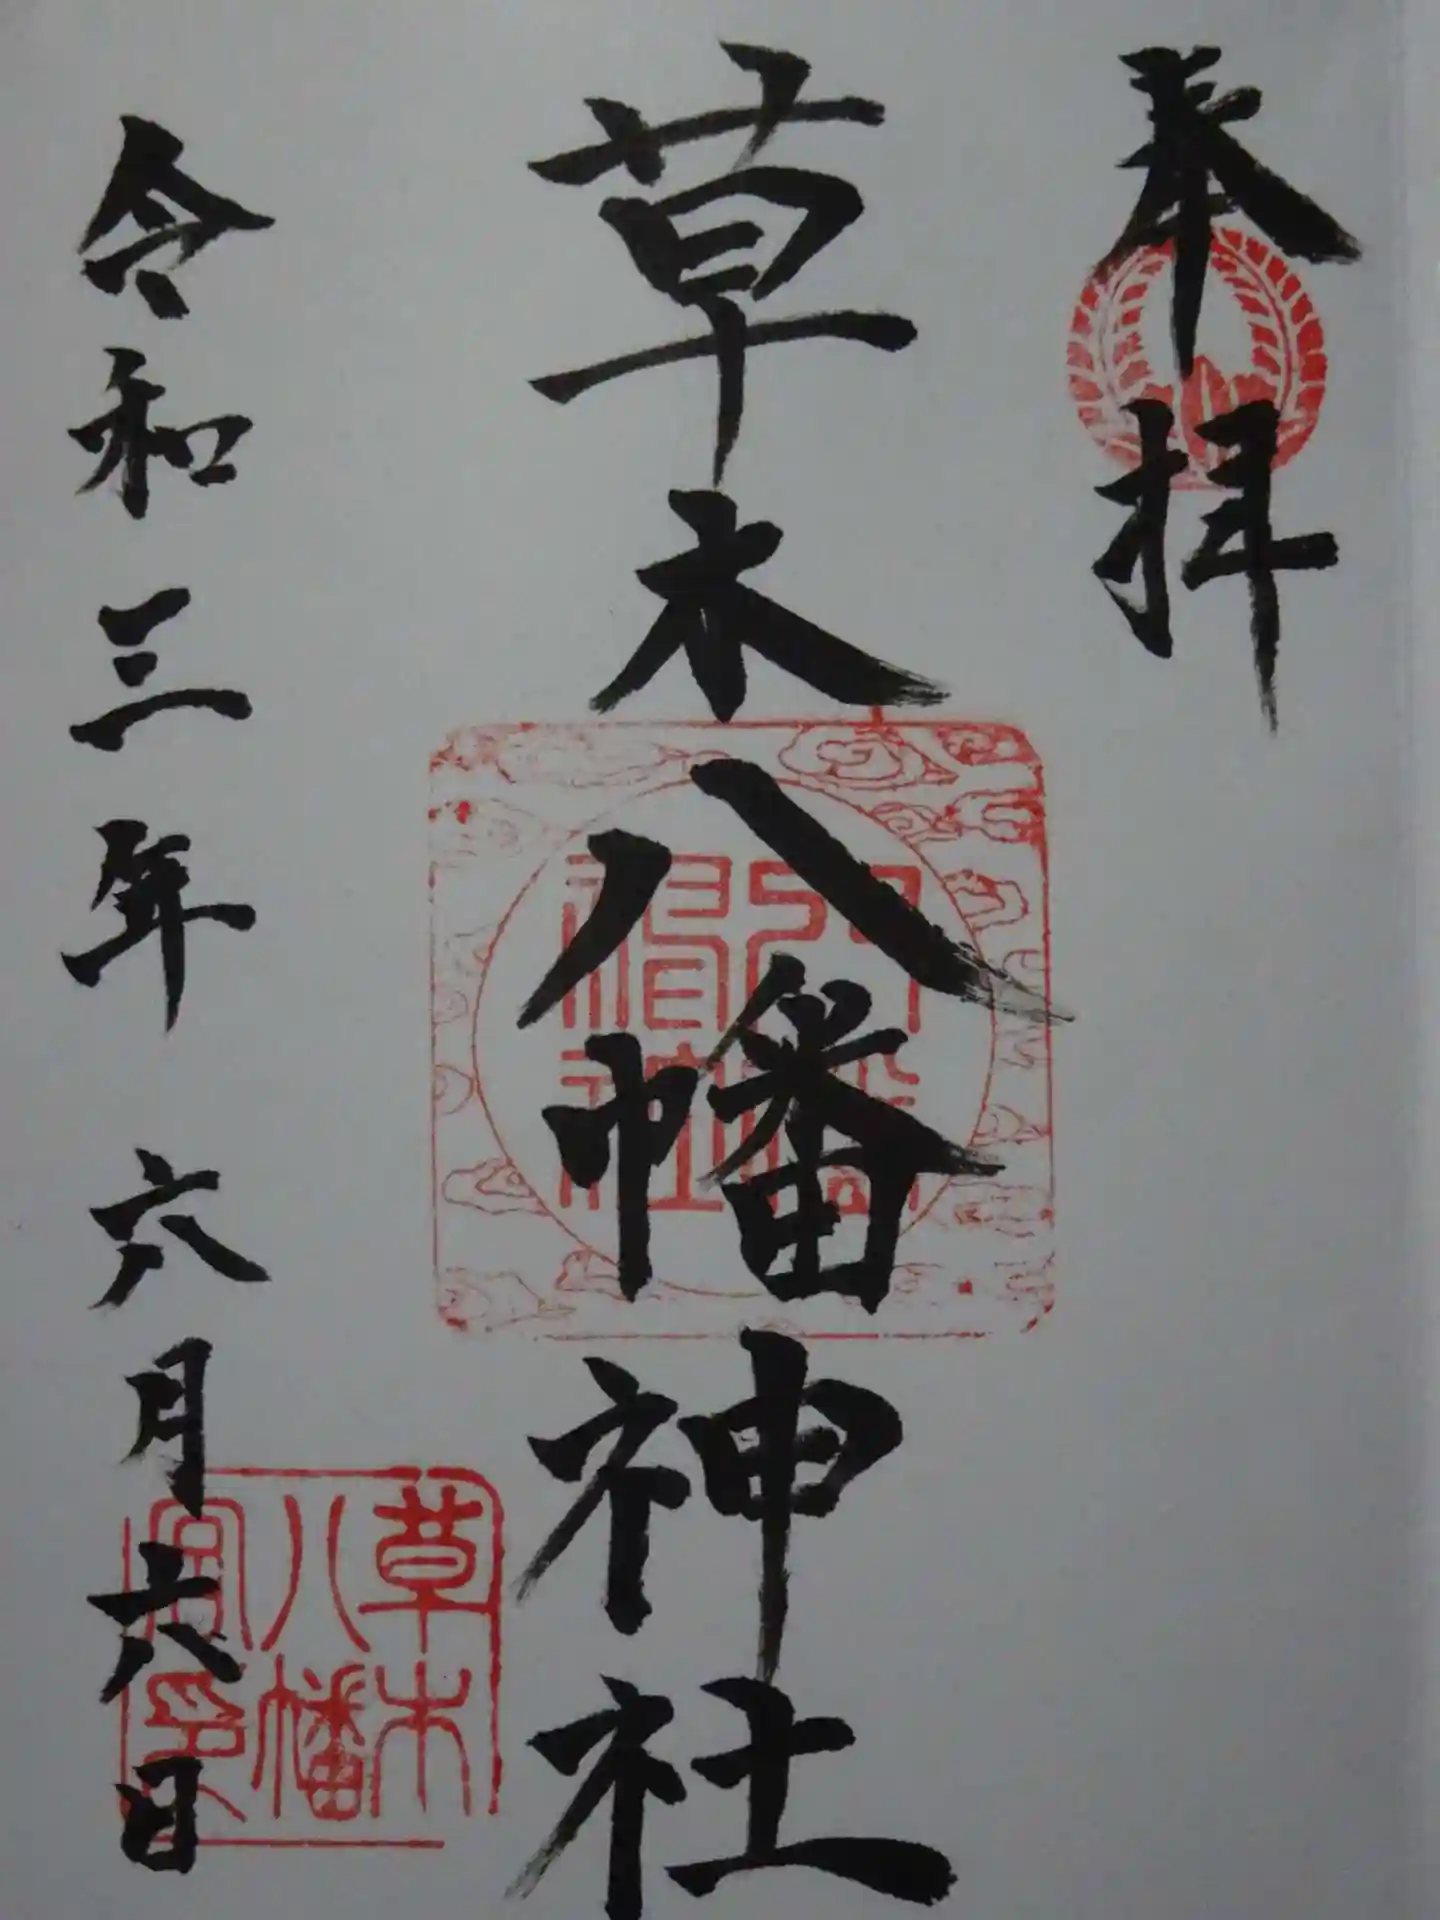 奉拝
草木八幡神社
令和三年 六月六日
八幡神社
草木八幡宮印